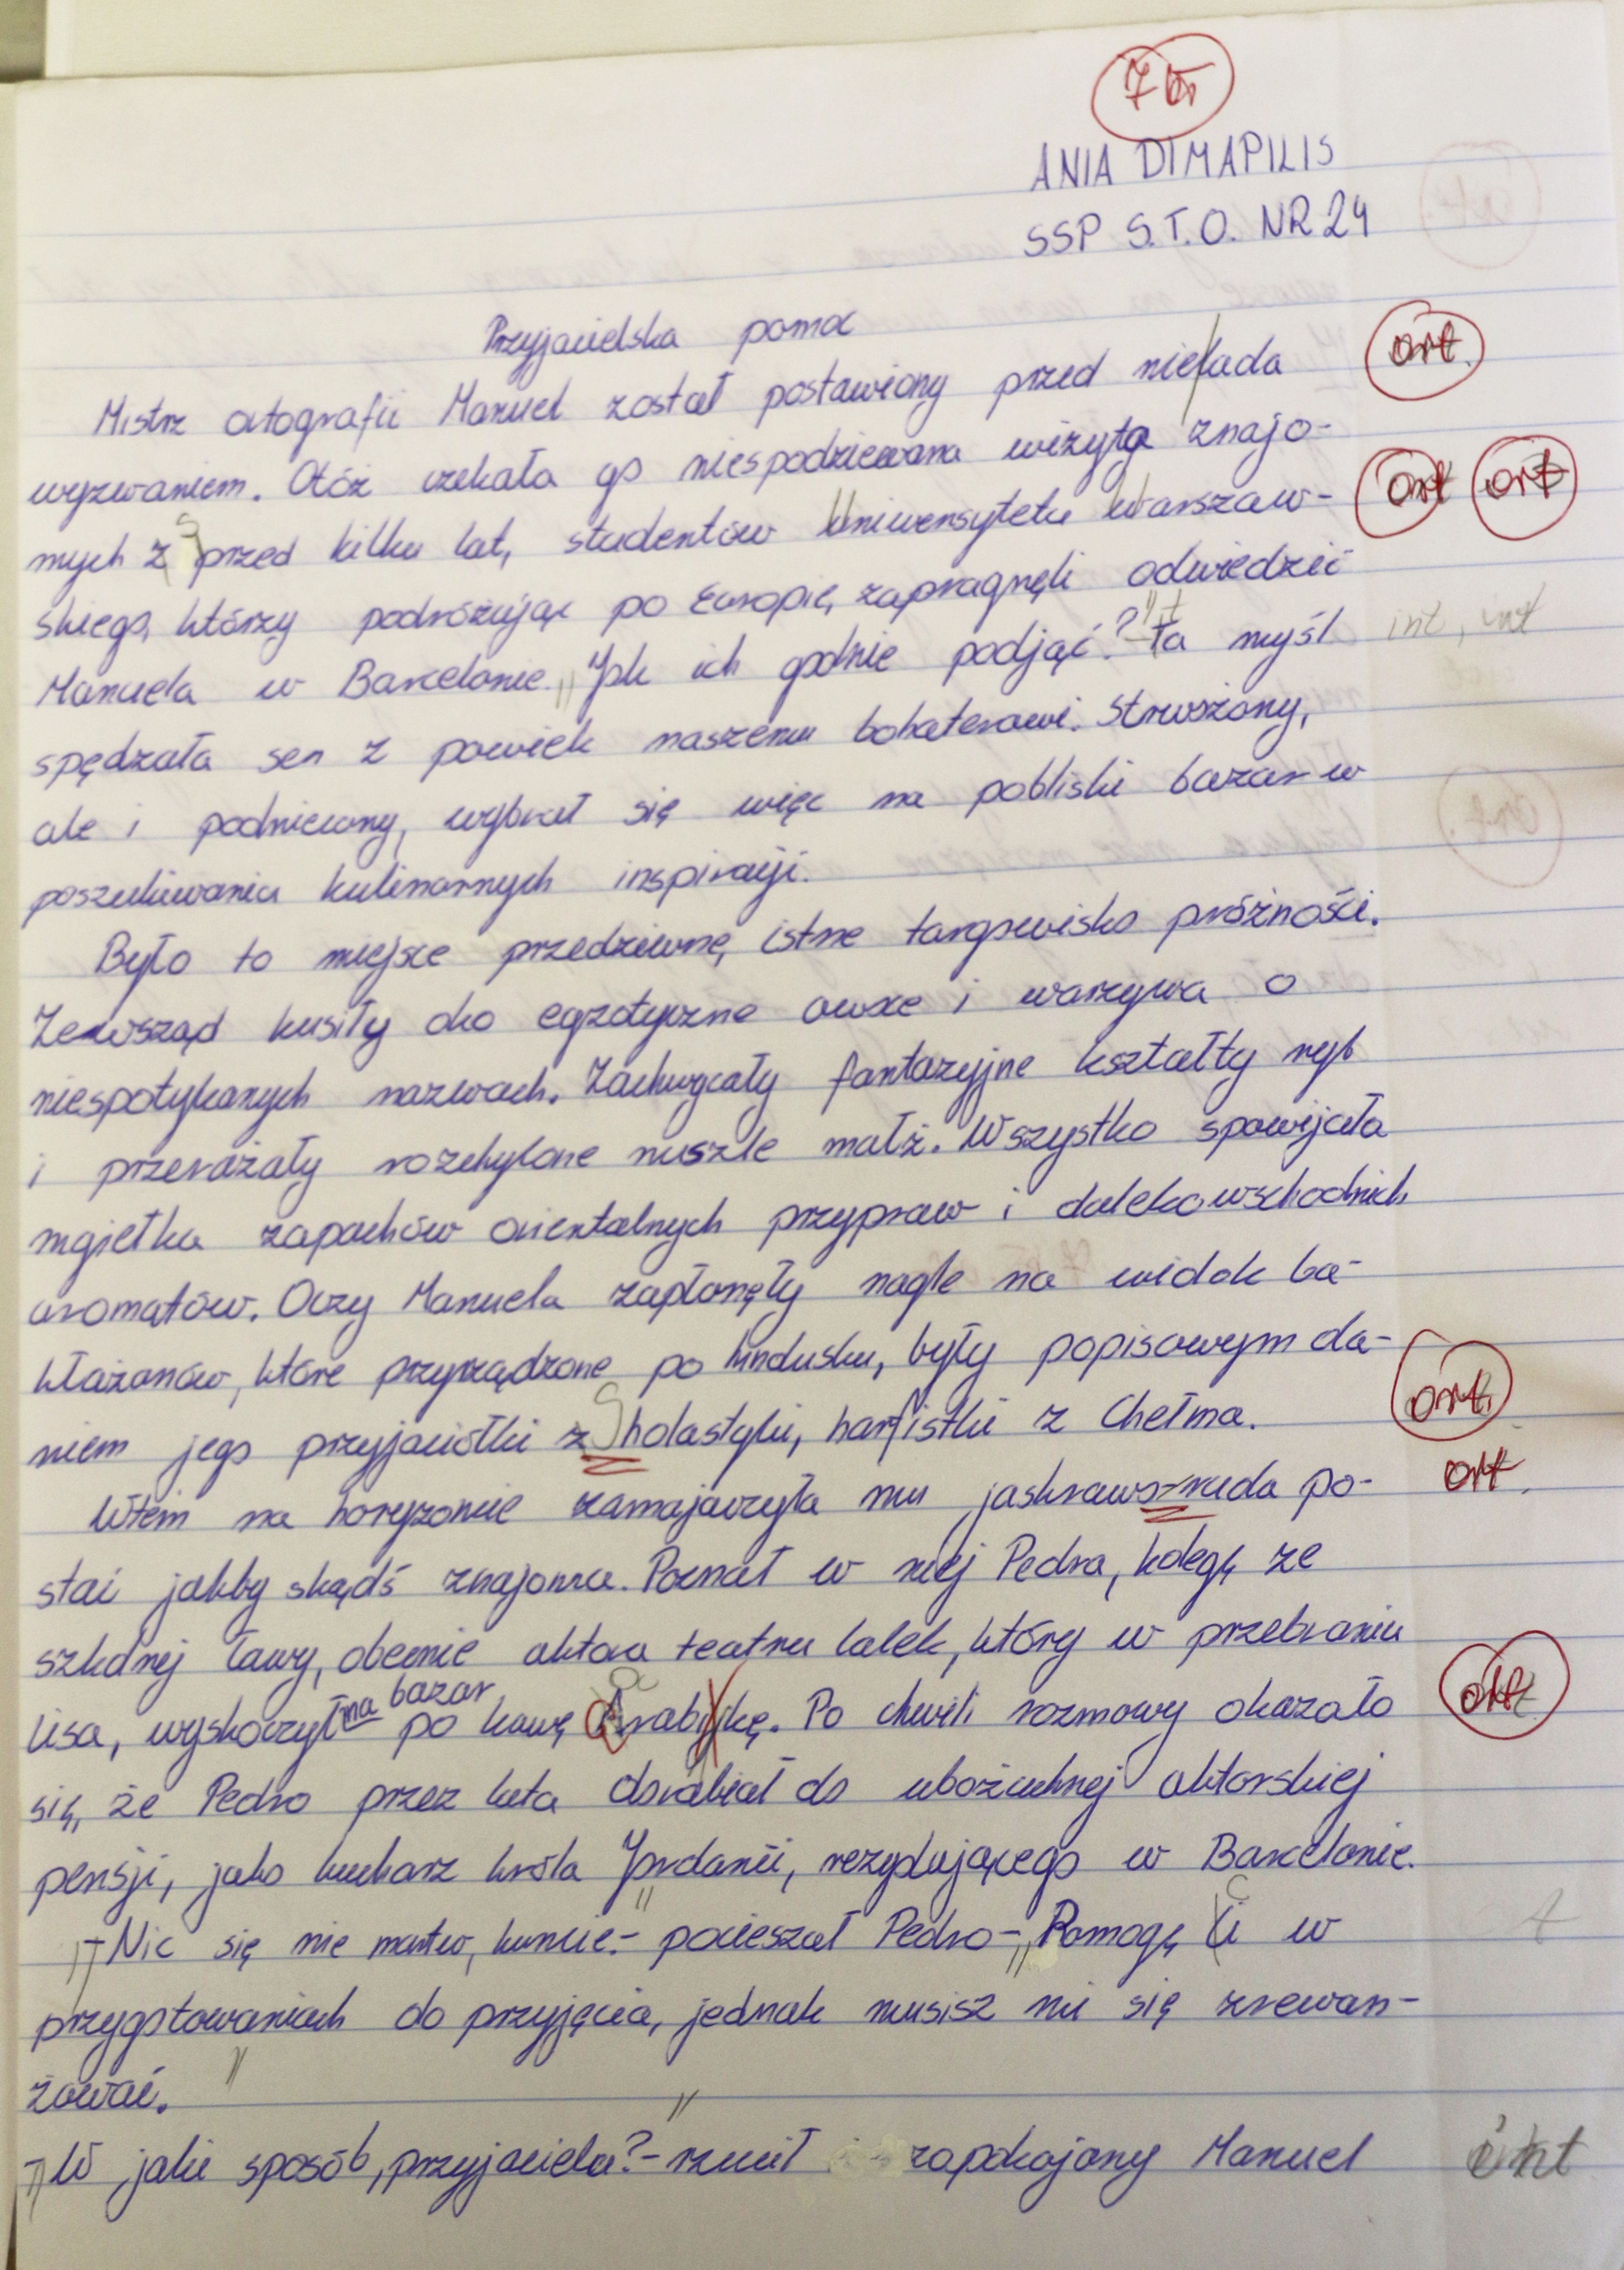 7 bł
ANIA DIMAPILIS
SSP S.T.O. NR 24
Przyjacielska pomoc
Mistrz ortografii Manuel został postawiony przed nielada ort.
wyzwaniem. Otóż czekała go niespodziewana wizyta znajo-
mych z s przed kilku lat, studentów Uniwersytetu Warszaw- ort ort
skiego, którzy podróżując po Europie, zapragnęli odwiedzić
Manuela w Barcelonie. „Jak ich godnie podjąć?" Ta myśl int, int
spędzała sen z powiek naszemu bohaterowi. Strwożony,
ale i podniecony, wybrał się więc na pobliski bazar w
poszukiwaniu kulinarnych inspiracji.
Było to miejsce przedziwne, istne targowisko próżności.
Zewsząd kusiły oko egzotyczne owoce i warzywa o
niespotykanych nazwach. Zachwycały fantazyjne kształty ryb
i przerażały rozchylone muszle małż. Wszystko spowijała
mgiełka zapachów orientalnych przypraw i dalekowschodnich
aromatów. Oczy Manuela zapłonęły nagle na widok ba-
kłażanów, które przyrządzone po hindusku, były popisowym da-
niem jego przyjaciółki z Sholastyki, harfistki z Chełma. ort.
Wtem na horyzoncie zamajaczyła mu jaskrawozruda po- ort.
stać jakby skądś znajoma. Poznał w niej Pedra, kolegę ze
szkolnej ławy, obecnie aktora teatru lalek, który w przebraniu
lisa, wyskoczył na bazar po kawę Arabijkę. Po chwili rozmowy okazało ort
się, że Pedro przez lata dorabiał do ubożuchnej aktorskiej
pensji, jako kucharz króla Jordanii, rezydującego w Barcelonie.
„- Nic się nie martw, kumcie." - pocieszał Pedro - „Pomogę Ci w
przygotowaniach do przyjęcia, jednak musisz mi się zrewan-
żować."
„- W jaki sposób, przyjacielu?" - rzucił zapokojony Manuel int